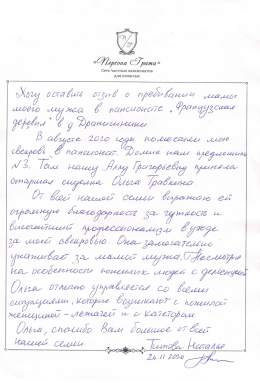 «Персона Грата»
Сеть частных пансионатов
для пожилых
Хочу оставить отзыв о пребывании мамы
моего мужа в пансионате „Французская
деревня" в д Дранишники
В августе 2020 года поместили мою
свекровь в пансионат. Домик нам предложили
№3. Там нашу Аллу Григорьевну приняла
старшая сиделка Ольга
От всей нашей семьи выражаю ей
огромную благодарность за чуткость и
высочайший профессионализм в уходе
за моей свекровью. Она замечательно
ухаживает за мамой мужа. Несмотря
на особенности пожилых людей с деменцией
Ольга отлично управляется со всеми
ситуациями, которые возникают с пожилой
женщиной - лежачей и с катетером
Ольга, спасибо Вам большое от всей
нашей семьи Титова Наталья
24.11.2020